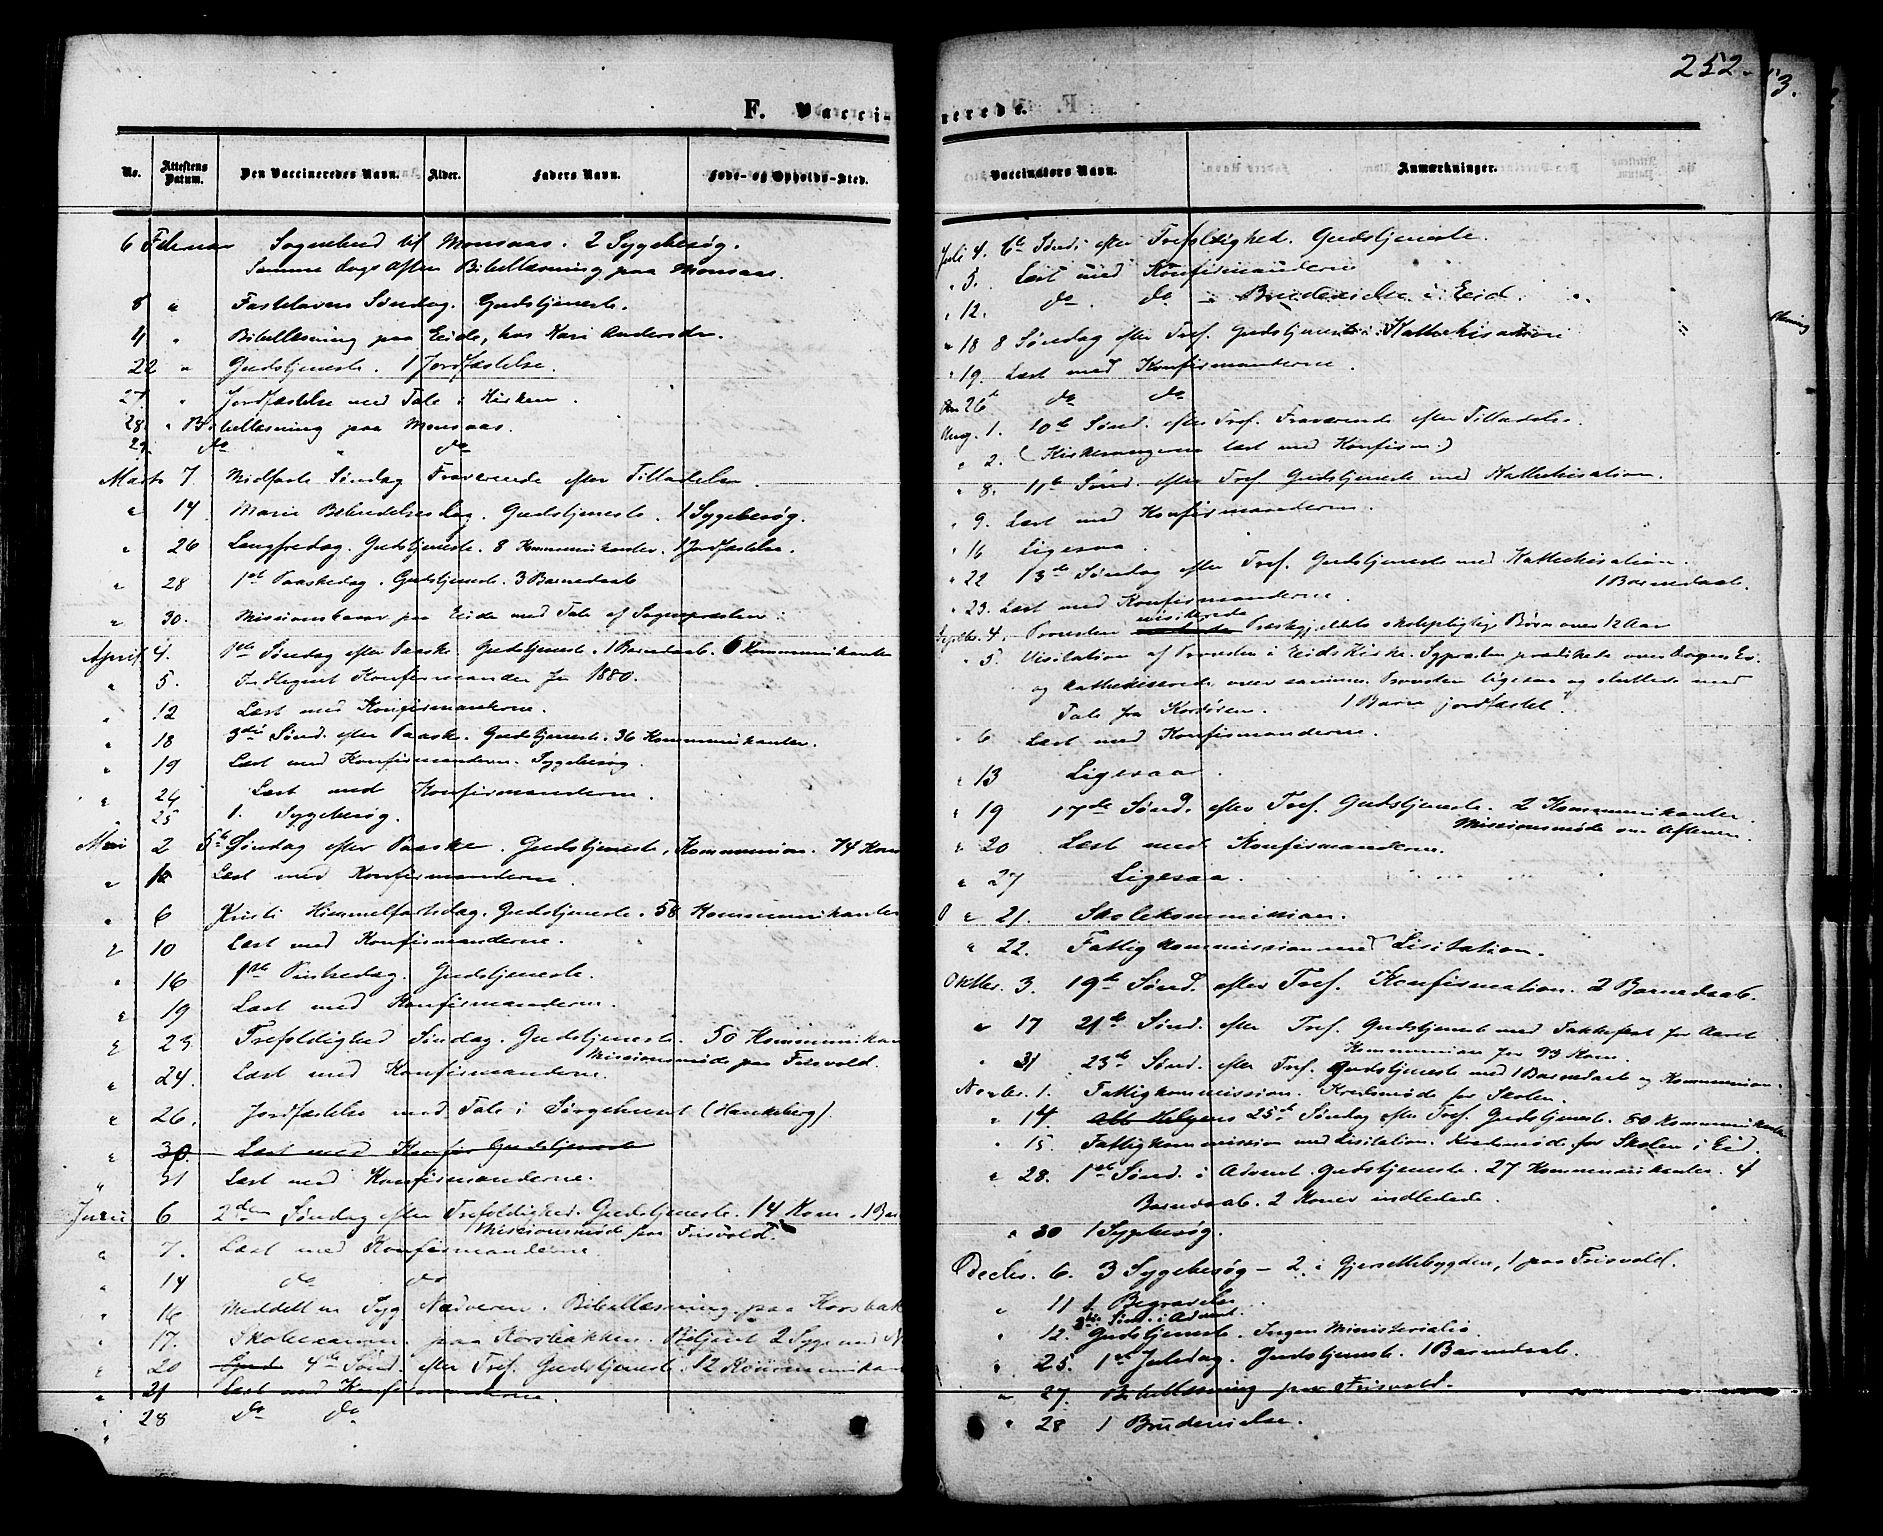 252.
3.
F. Vacci
nerede.
No.
Attestens Datum.
Den Vaccineredes Navn.
Alder.
Faders Navn.
Føde- og Opholds-Sted.
Vaccinators Navn.
Anmærkninger.
6 Februar Sognebud til Monsaas. 2 Sygebesøg.
Samme Dags Aften Bibellæsning paa Monsaas.
8 " Fastelavns Søndag. Gudstjeneste.
" Bibellæsning paa Eide, hos Kari Andersdn.
22 " Gudstjeneste. 1 Jordfæstelse.
27. " Jordfæstelse med Tale i Kirken.
28. " Bibellæsning paa Monsaas.
29. do " do
Marts 7 Midfaste Søndag Fraværende efter Tilladelse.
" 14 Mariæ Bebudelsesdag. Gudstjeneste. 1 Sygebesøg.
" 26 Langfredag. Gudstjeneste. 8 Kommunikanter. 1 Jordfæstelse.
" 28 1ste Paaskedag. Gudstjeneste. 3 Barnedaab
" 30. Missionsbazar paa Eide med Tale af Sognepræsten
April 4. 1ste Søndag efter Paaske. Gudstjeneste. 1 Barnedaab. 6 Kommunikanter
" 5. Indtegnet Konfirmander for 1880.
" 12 Læst med Konfirmanderne.
" 18 3die Sønd. efter Paaske. Gudstjeneste. 36 Kommunikanter.
" 19 Læst med Konfirmanderne. Sygebesøg.
" 24 Læst med Konfirmanderne.
" 25 1. Sygebesøg.
Mai 2 5te Søndag efter Paaske. Gudstjeneste. Kommunion. 74 Kom
" Læst med Konfirmanderne.
" 6 Kristi Himmelfartsdag. Gudstjeneste. 58 Kommunikanter
" 10 Læst med Konfirmanderne.
" 16 1ste Pinsedag. Gudstjeneste.
" 19 Læst med Konfirmanderne.
" 23 Trefoldighed Søndag. Gudstjeneste. 50 Kommunikan
Missionsmøde paa Frisvold.
" 24. Læst med Konfirmanderne.
" 26. Jordfæstelse med Tale i Sørgehuset
" 30. Læst med Konfir Gudstjeneste
" 31 Læst med Konfirmanderne.
Juni 6 2den Søndag efter Trefoldighed. Gudstjeneste. 14 Kom. 1 Bar
Missionsmøde paa Frisvold.
" 7. Læst med Konfirmanderne.
" 14 do do
" 16 Meddelt en Syg Nadveren. Bibellæsning paa Korsbak
" 17. Skoleexamen paa Korsbakken. Betjent 2 Syge med N
" 20 4de Sønd. efter Tref. Gudstjeneste. 12 Kommunikan
" 21 Læst med Konfirmanderne.
" 28 do do
Juli 4. 6te Sønd. efter Trefoldighed. Gudstjeneste.
" 5. Læst med Konfirmanderne
" 12. do do – Brudevielse i Eid.
" 18 8 Søndag efter Tref. Gudstjeneste. Kathekisation
" 19. Læst med Konfirmanderne.
Den 26de do do
Aug. 1. 10de Sønd. efter Tref. Fraværende efter Tilladelse.
" 2. (Kirkesangeren læst med Konfirm.)
" 8. 11te Sønd. efter Tref. Gudstjeneste med Kathekisation.
" 9. Læst med Konfirmanderne.
" 16 Ligesaa.
" 22 13de Søndag efter Tref. Gudstjeneste med Kathekisation.
1 Barnedaab.
" 23. Læst med Konfirmanderne.
visiterede
Septbr. 4. Provsten Præstegjeldets skolepligtige Børn over 12 Aar
" 5. Visitation af Provsten i Eids Kirke. Sgpræsten prædikede over Dagens Ev.
og kathekiserede over samme. Provsten ligesaa og sluttede med
Tale fra Kordøren. 1 Barn jordfæstet.
" 6 Læst med Konfirmanderne.
" 13 Ligesaa.
" 19 17de Sønd. efter Tref. Gudstjeneste. 2 Kommunikanter.
Missionsmøde om Aftenen.
" 20 Læst med Konfirmanderne.
" 27 Ligesaa.
" 21. Skolekommission.
" 22. Fattigkommission med Lisitation.
Oktbr. 3. 19de Sønd. efter Tref. Konfirmation. 2 Barnedaab.
" 17 21de Sønd. efter Tref. Gudstjeneste med Takkefest for Aaret
Kommunion for 93 Kom.
" 31 23de Sønd. efter Tref. Gudstjeneste med 1 Barnedaab og Kommunion.
Novbr. 1. Fattigkommission. Kredsmøde for Skolen.
" 14. Alle Helgens 25de Søndag efter Tref. Gudstjeneste. 80 Kommunikanter
" 15. Fattigkommission med Lisitation. Kredsmøde for Skolen i Eid.
" 28. 1ste Sønd. i Advent. Gudstjeneste. 27 Kommunikanter. 4
Barnedaab. 2 Koner indledede.
" 30 1 Sygebesøg.
Decbr. 6. 3 Sygebesøg – 2 i Gjersetbygden, 1 paa Frisvold.
" 11 1 Begravelse.
3die Sønd. i Advent.
" 12. Gudstjeneste. Ingen Ministerialia.
" 25. 1ste Juledag. Gudstjeneste. 1 Barnedaab.
" 27. Bibellæsning paa Frisvold.
" 28 1 Brudevielse.